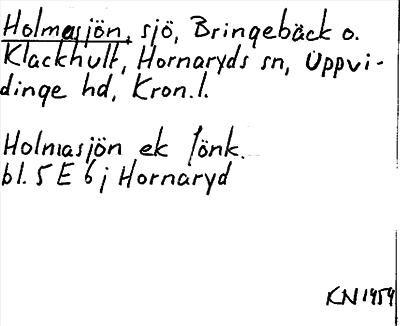 Holmasjön, sjö, Bringebäck o.
Klackhult, Hornaryds sn, Uppvi-
dinge hd, Kron.l.
Holmasjön ek
bl. 5 E 6 j Hornaryd
KN 1959